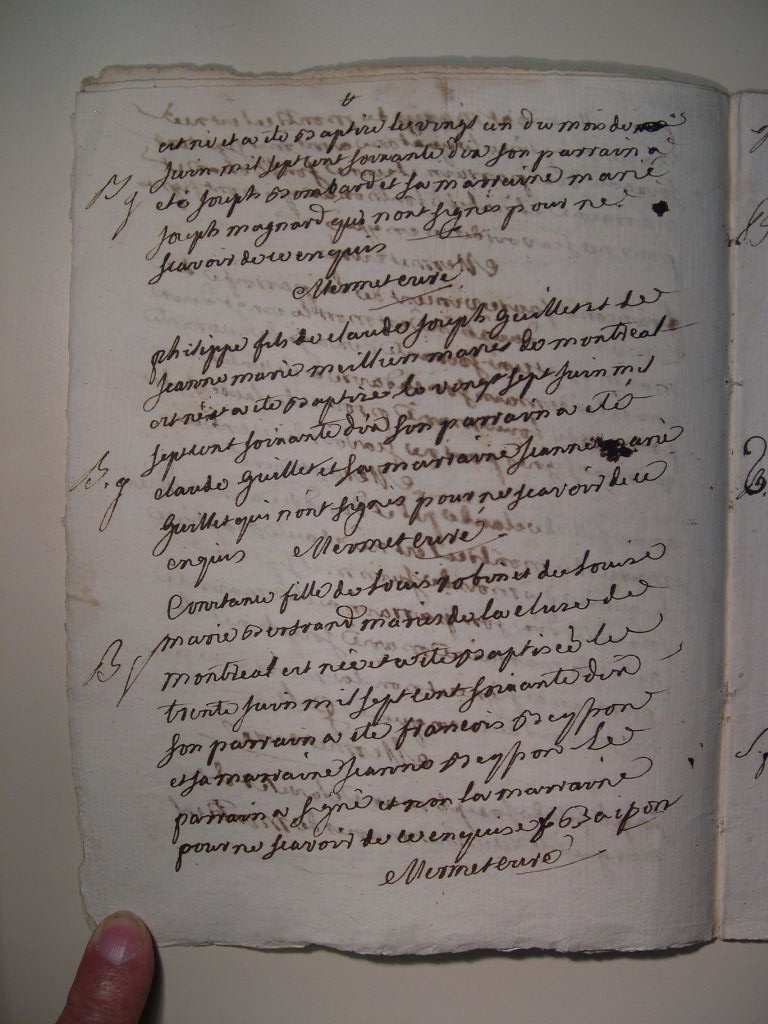 est né et a ete Baptise le vingt un du mois de
B g
Juin mil sept cent soixante dix son parrain a
eté Joseph Bombard et sa marraine marie
Joseph magnard qui nont signés pour ne
scavoir de ce enquis
Mermet curé
philippe fils de claude Joseph Guillet et de
Jeanne marie meillier mariés de montreal
est né et a ete Baptise le vingt sept Juin mil
sept cent soixante dix son parrain a eté
B. g
claude Guillet et sa marraine Jeanne marie
Guillet qui nont signés pour ne scavoir de ce
enquis Mermet curé
Constance fille de Louis robin et de Louise
marie Bertrand mariés de la cluse de
B f
montreal est née et a ete Baptisée le
trente Juin mil sept cent soixante dix
son parrain a ete francois Beysson
et sa marraine Jeanne Beysson le
parrain a signé et non la marraine
pour ne scavoir de ce enquise f Baipon
Mermet curé